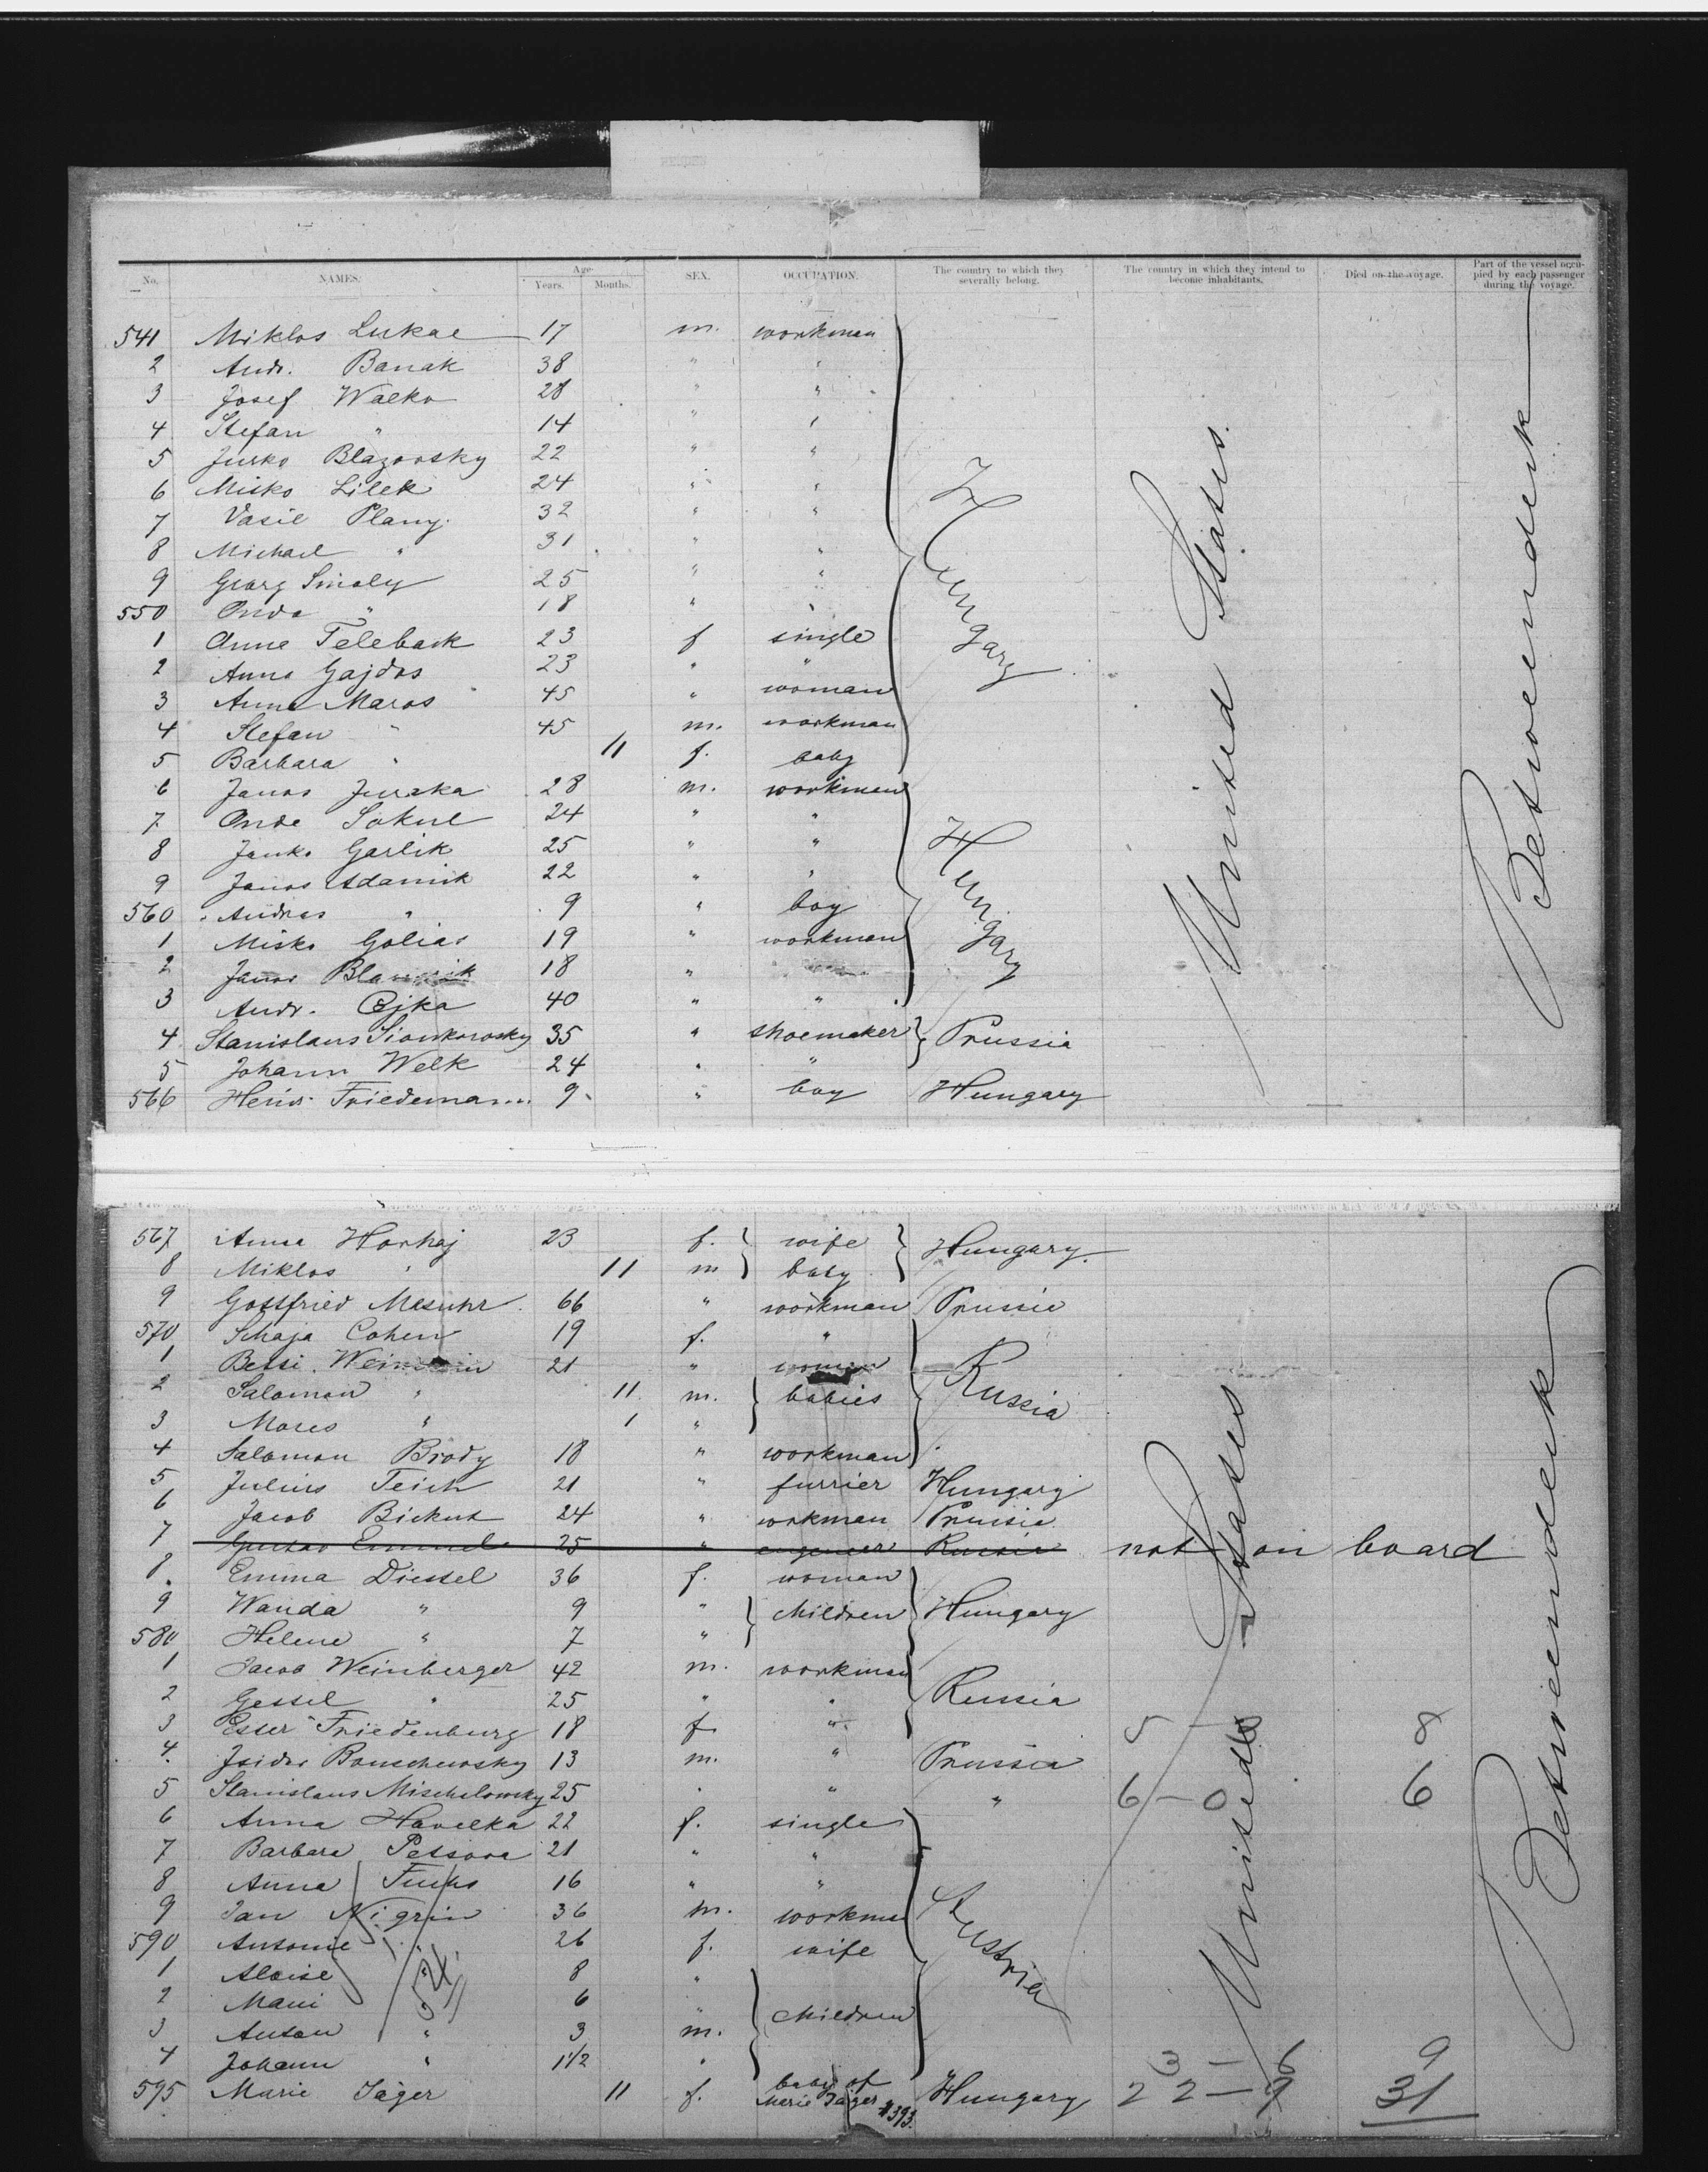 No. NAMES. Age Years. Months. SEX. OCCUPATION. The country to which they severally belong. The country in which they intend to become inhabitants. Died on the voyage. Part of the vessel occupied by each passenger during the voyage.
541 Miklos Lukac 17 m. workman
2 Andr. Banak 38 " "
3 Josef Walko 28 " "
4 Stefan " 14 " "
5 Jurko Blazovsky 22 " "
6 Misko Lilek 24 " "
7 Vasil Plany. 32 " "
8 Michael " 31 " "
9 Georg Smoly 25 " "
550 Onda " 18 " "
Hungary
1 Anna Teleback 23 f single
2 Anna Gajdos 23 " "
3 Anna Maros 45 " woman
4 Stefan " 45 m. workman
5 Barbara " 11 f. baby
6 Janos Juraka 28 m. workman
7 Onde Sokul 24 " "
8 Janko Garlik 25 " "
9 Janos Adamik 22 " "
560 Andras " 9 " boy
Hungary
1 Misko Golias 19 " workman
2 Janos 18 "
3 Andr. Cejka 40 " "
4 Stanislaus Sionkowsky 35 " shoemaker Prussia
5 Johann Welk 24 " "
566 Heinr. Friedemann 9 " boy Hungary
United States.
Betweendeck
567 Anna Horhaj 23 f. wife Hungary.
8 Miklos " 11 m baby
9 Gottfried Masuhr 66 " workman Prussia
570 Schaja Cohen 19 f. "
1 Bessi 21 " woman
2 Salomon " 11 m. babies Russia
3 Mores " 1 "
4 Salomon Brody 18 " workman
5 Julius Teich 21 " furrier Hungary
6 Jacob Bickus 24 " workman Prussia
7 Gustav Emmel 25 " engineer Russia not on board
8 Emma Diessel 36 f. woman
9 Wanda " 9 " children Hungary
580 Helene " 7 "
1 Jacob Weinberger 42 m. workman
2 Gessel " 25 " " Russia
3 Esser Friedenburg 18 f. " 5 8
4. Isidor Bouschewsky 13 m. " Prussia
5 Stanislaus Mischelowsky 25 " " " 6 - 0 6
6 Anna Havelka 22 f. single
7 Barbara Pessora 21 " "
8 Anna Fuchs 16 " "
9 Jan Nigrin 36 m. workman
590 Antonie " 26 f. wife
Austria
1 Aloise " 8 "
2 Mari " 6 " children
3 Anton " 3 m.
4 Johann " 1 1/2 " 3 - 6 9
595 Marie Jäger 11 f. baby of Marie Jäger #393. Hungary 22 - 9 31
United States
Betweendeck